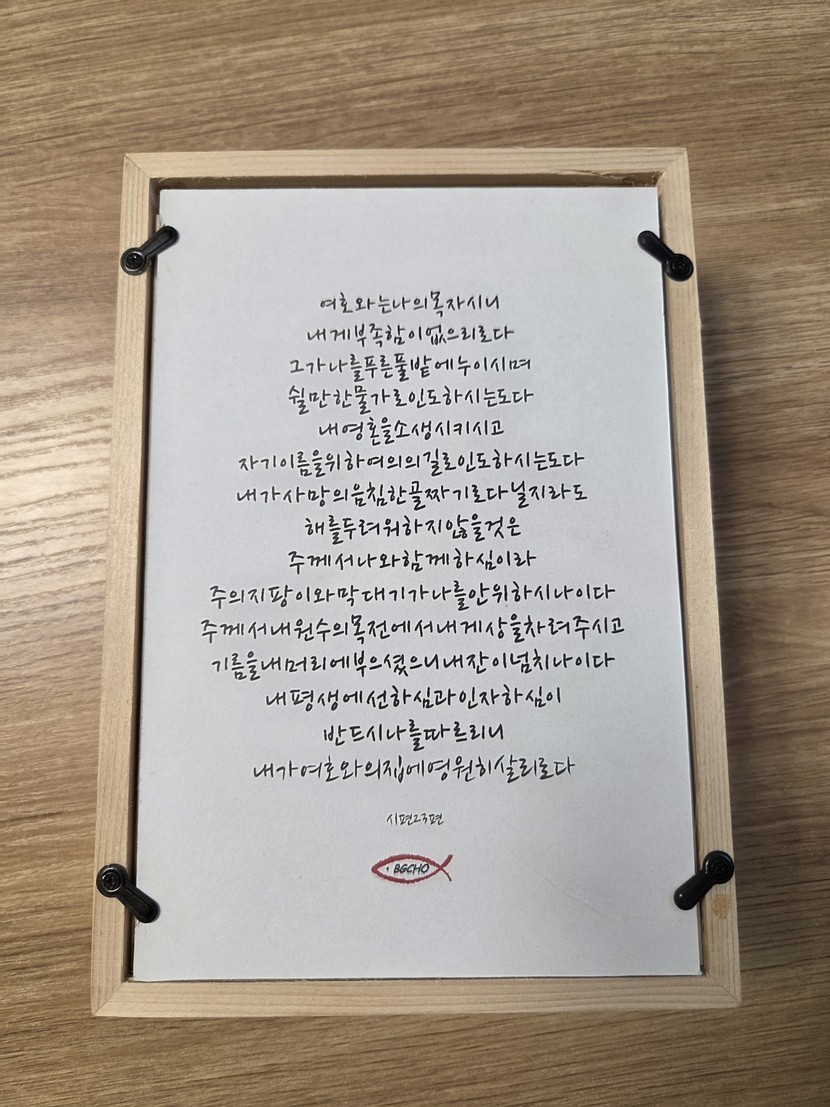 여호와는나의목자시니
내게부족함이없으리로다
그가나를푸른풀밭에누이시며
쉴만한물가로인도하시는도다
내영혼을소생시키시고
자기이름을위하여의의길로인도하시는도다
내가사망의음침한골짜기로다닐지라도
해를두려워하지않을것은
주께서나와함께하심이라
주의지팡이와막대기가나를안위하시나이다
주께서내원수의목전에서내게상을차려주시고
기름을내머리에부으셨으니내잔이넘치나이다
내평생에선하심과인자하심이
반드시나를따르리니
내가여호와의집에영원히살리로다
시편23편
BGCHO